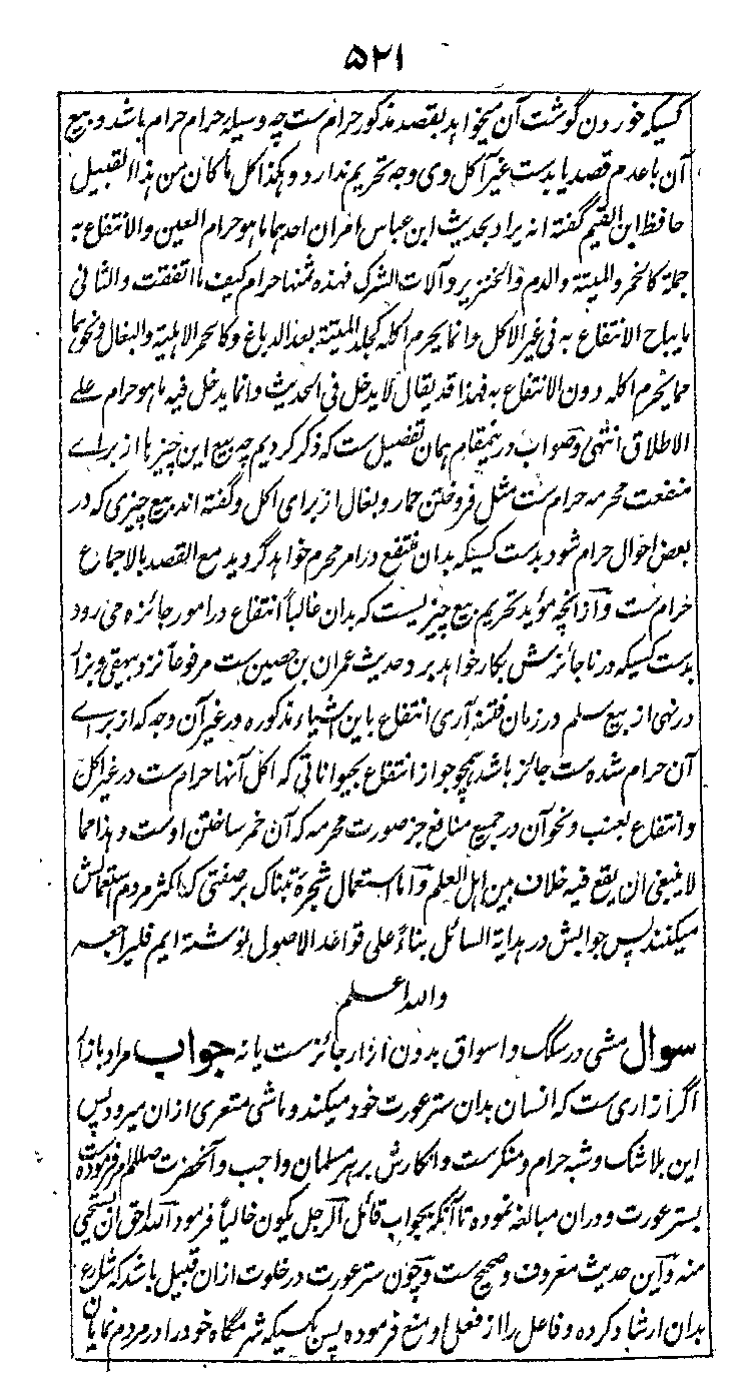 ۵۲۱
کسیکه خوردن گوشت آن میخواهد بقصد مذکور حرام ست چه وسیلهٔ حرام حرام باشد و بیع
آن با عدم قصد یا بدست غیر آکل وی وجه تحریم ندارد و هکذا کل ما کان من هذا القبیل
حافظ ابن القیم گفته انه یراد بحدیث ابن عباس امران احدهما ما هو حرام العین والانتفاع به
جملة کالخمر والمیتة والدم والخنزیر وآلات الشرک فهذه ثمنها حرام کیف ما اتفقت والثانی
ما یباح الانتفاع به فی غیر الاکل وانما یحرم اکله کجلد المیتة بعد الدباغ وکالحمر الاهلیة والبغال ونحوهما
مما یحرم اکله دون الانتفاع به فهذا قد یقال لا یدخل فی الحدیث وانما یدخل فیه ما هو حرام علے
الاطلاق انتهی وصواب درینمقام همان تفصیل ست که ذکر کردیم چه بیع این چیزها از براے
منفعت محرمه حرام ست مثل فروختن حمار و بغال از برای اکل و گفته اند بیع چیزی که در
بعض احوال حرام شود بدست کسیکه بدان منتفع در امر محرم خواهد گردید مع القصد بالاجماع
حرام ست و از آنچه مؤید تحریم بیع چیزیست که بدان غالباً انتفاع در امور جائزه می رود
بدست کسیکه در ناجائزش بکار خواهد برد حدیث عمران بن حصین ست مرفوعاً نزد بیهقی و بزار
در نهی از بیع سلم در زمان فتنه آری انتفاع باین اشیاء مذکوره در غیر آن وجه که از براے
آن حرام شده ست جائز باشد همچو جواز انتفاع بحیواناتی که اکل آنها حرام ست در غیر اکل
و انتفاع بعنب و نحو آن در جمیع منافع جز صورت محرمه که آن خمر ساختن اوست وهذا مما
لا ینبغی ان یقع فیه خلاف بین اهل العلم و اما استعمال شجرهٔ تنباک بر صفتی که اکثر مردم استعمالش
میکنند پس جوابش در هدایة السائل بناءً علی قواعد الاصول نوشته ایم فلیراجعه
والله اعلم
سوال مشی در سکک و اسواق بدون ازار جائز ست یا نه جواب مراد بازار
اگر ازاری ست که انسان بدان ستر عورت خود میکند و ماشی متعری ازان میرود پس
این بلا شک و شبه حرام و منکر ست و انکارش بر هر مسلمان واجب و آنحضرت صللم امر فرموده ست
بستر عورت و دران مبالغه نموده تا آنکه بجواب قائل الرجل یکون خالیاً فرمود الله احق ان یستحیی
منه و این حدیث معروف و صحیح ست و چون ستر عورت در خلوت ازان قبیل باشد که شارع
بدان ارشاد کرده و فاعل را از فعل او منع فرموده پس بکسیکه شرمگاه خود را در مردم نمایان